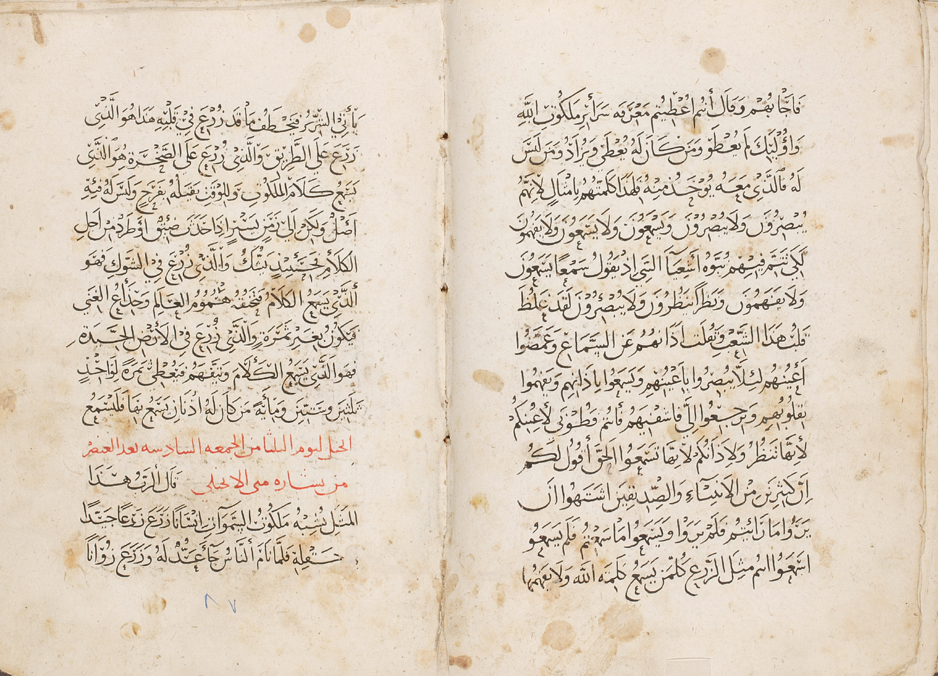 فاجابهم وقال انتم اعطيتم معرفه سرائر ملكوت الله
واوليك لم يعطو ومن كان له يعطى ويزاد ومن ليس
له فالذي معه يوخذ منه فلهذا كلمتهم بامثال لانهم
يبصرون ولا يبصرون ويسمعون ولا يسمعون ولا يفهمون
لكي تتم فيهم نبوه اشعيا النبي اذ يقول سمعا يسمعون
ولا يفهمون ونظرا ينظرون ولا يبصرون لقد غلظ
قلب هذا الشعب وثقلت اذانهم عن السماع وغمضوا
اعينهم لئلا يبصروا باعينهم ويسمعوا باذانهم ويفهموا
بقلوبهم ويرجعوا الي فاشفيهم فانتم فطوبى لاعينكم
لانها تنظر ولاذانكم لانها تسمع الحق اقول لكم
ان كثيرين من الانبياء والصديقين اشتهوا ان
يروا ما رائيتم فلم يروا ويسمعوا ما سمعتم فلم يسمعو
اسمعوا انتم مثل الزرع كلمن يسمع كلمه الله ولا يفهمها
ياتي الشرير فيخطف ما قد زرع في قلبه هذا هو الذي
زرع على الطريق والذي زرع على الصخرة هو الذي
يسمع كلام الملكوت وللوقت يقبله بفرح وليس له فيه
اصل ولكن الي زمن يسير اذا حدث ضيق او طرد من اجل
الكلام فحينيذ يشك والذي زرع في الشوك فهو
الذي يسمع الكلام فتخنقه هموم العالم وخداع الغني
فيكون بغير ثمرة والذي زرع في الارض الجيده
فهو الذي يسمع الكلام ويتفهم فيعطي ثمرة لواحد
ثلثين وستين ومائة من كان له اذنان يسمع بها فليسمع
انجيل ليوم الثلثا من الجمعه السادسه بعد العنصره
من بشاره متى الانجيلي قال الرب هذا
المثل يشبه ملكوت السموات انسانا زرع زرعا جيدا
في حقله فلما نام الناس جا عدو له وزرع زوانا
٨٧